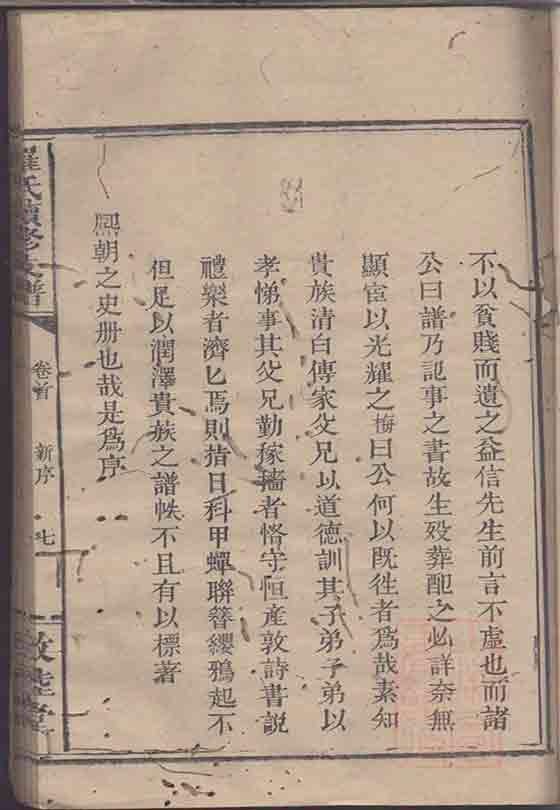 不以貧賤而遺之益信先生前言不虛也而諸
公曰譜乃記事之書故生殁葬配之必詳奈無
顯宦以光耀之梅曰公何以旣徃者爲哉素知
貴族清白傳家父兄以道德訓其子弟子弟以
孝悌事其父兄勤稼穡者恪守恒産敦詩書說
禮樂者濟匕焉則指日科甲蟬聯簪纓鵶起不
但足以潤澤貴族之譜帙不且有以標著
熈朝之史册也哉是爲序
羅氏續修族譜
卷首
新序
七
敦睦堂